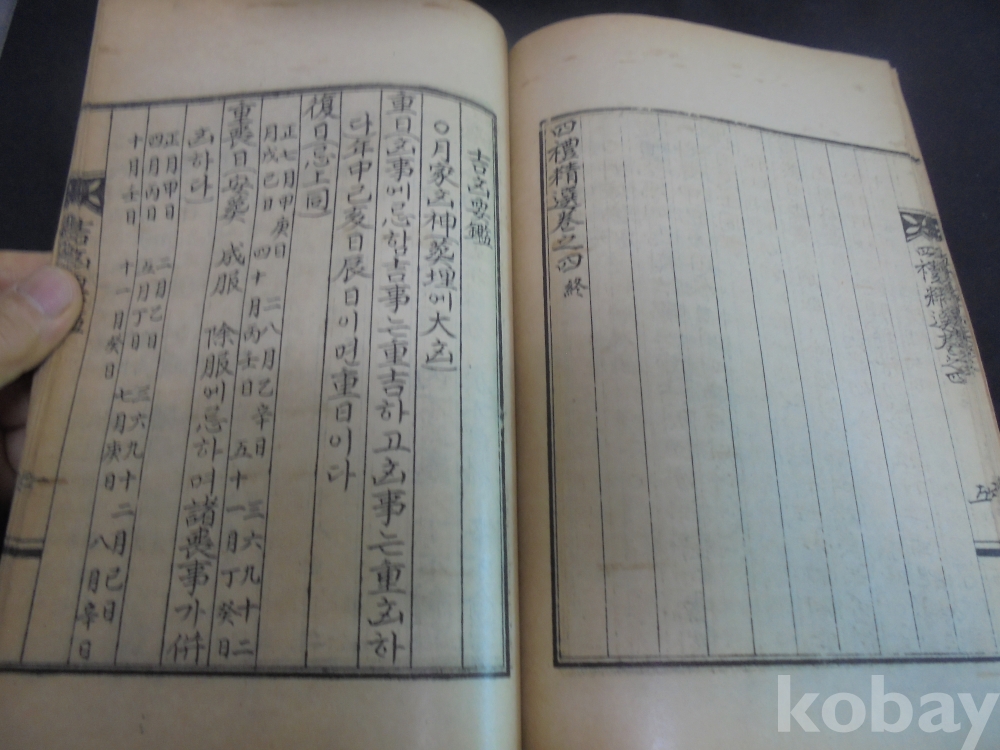 四禮精選卷之四 終
吉凶要鑑
○月家凶神(葬埋에大凶)
重日(凶事에忌함吉事는重吉하고凶事는重凶하
다)年中己亥日辰日이면重日이다
復日(忌上同)
正七月甲庚日 二八月乙辛日 三六九十二
月戊己日 四十月丙壬日 五十一月丁癸日
重喪日(安葬 成服 除服에忌하며諸喪事가併
凶하다)
正月甲日 二月乙日 三六九十二月己日
四月丙日 五月丁日 七月庚日 八月辛日
十月壬日 十一月癸日
kobay